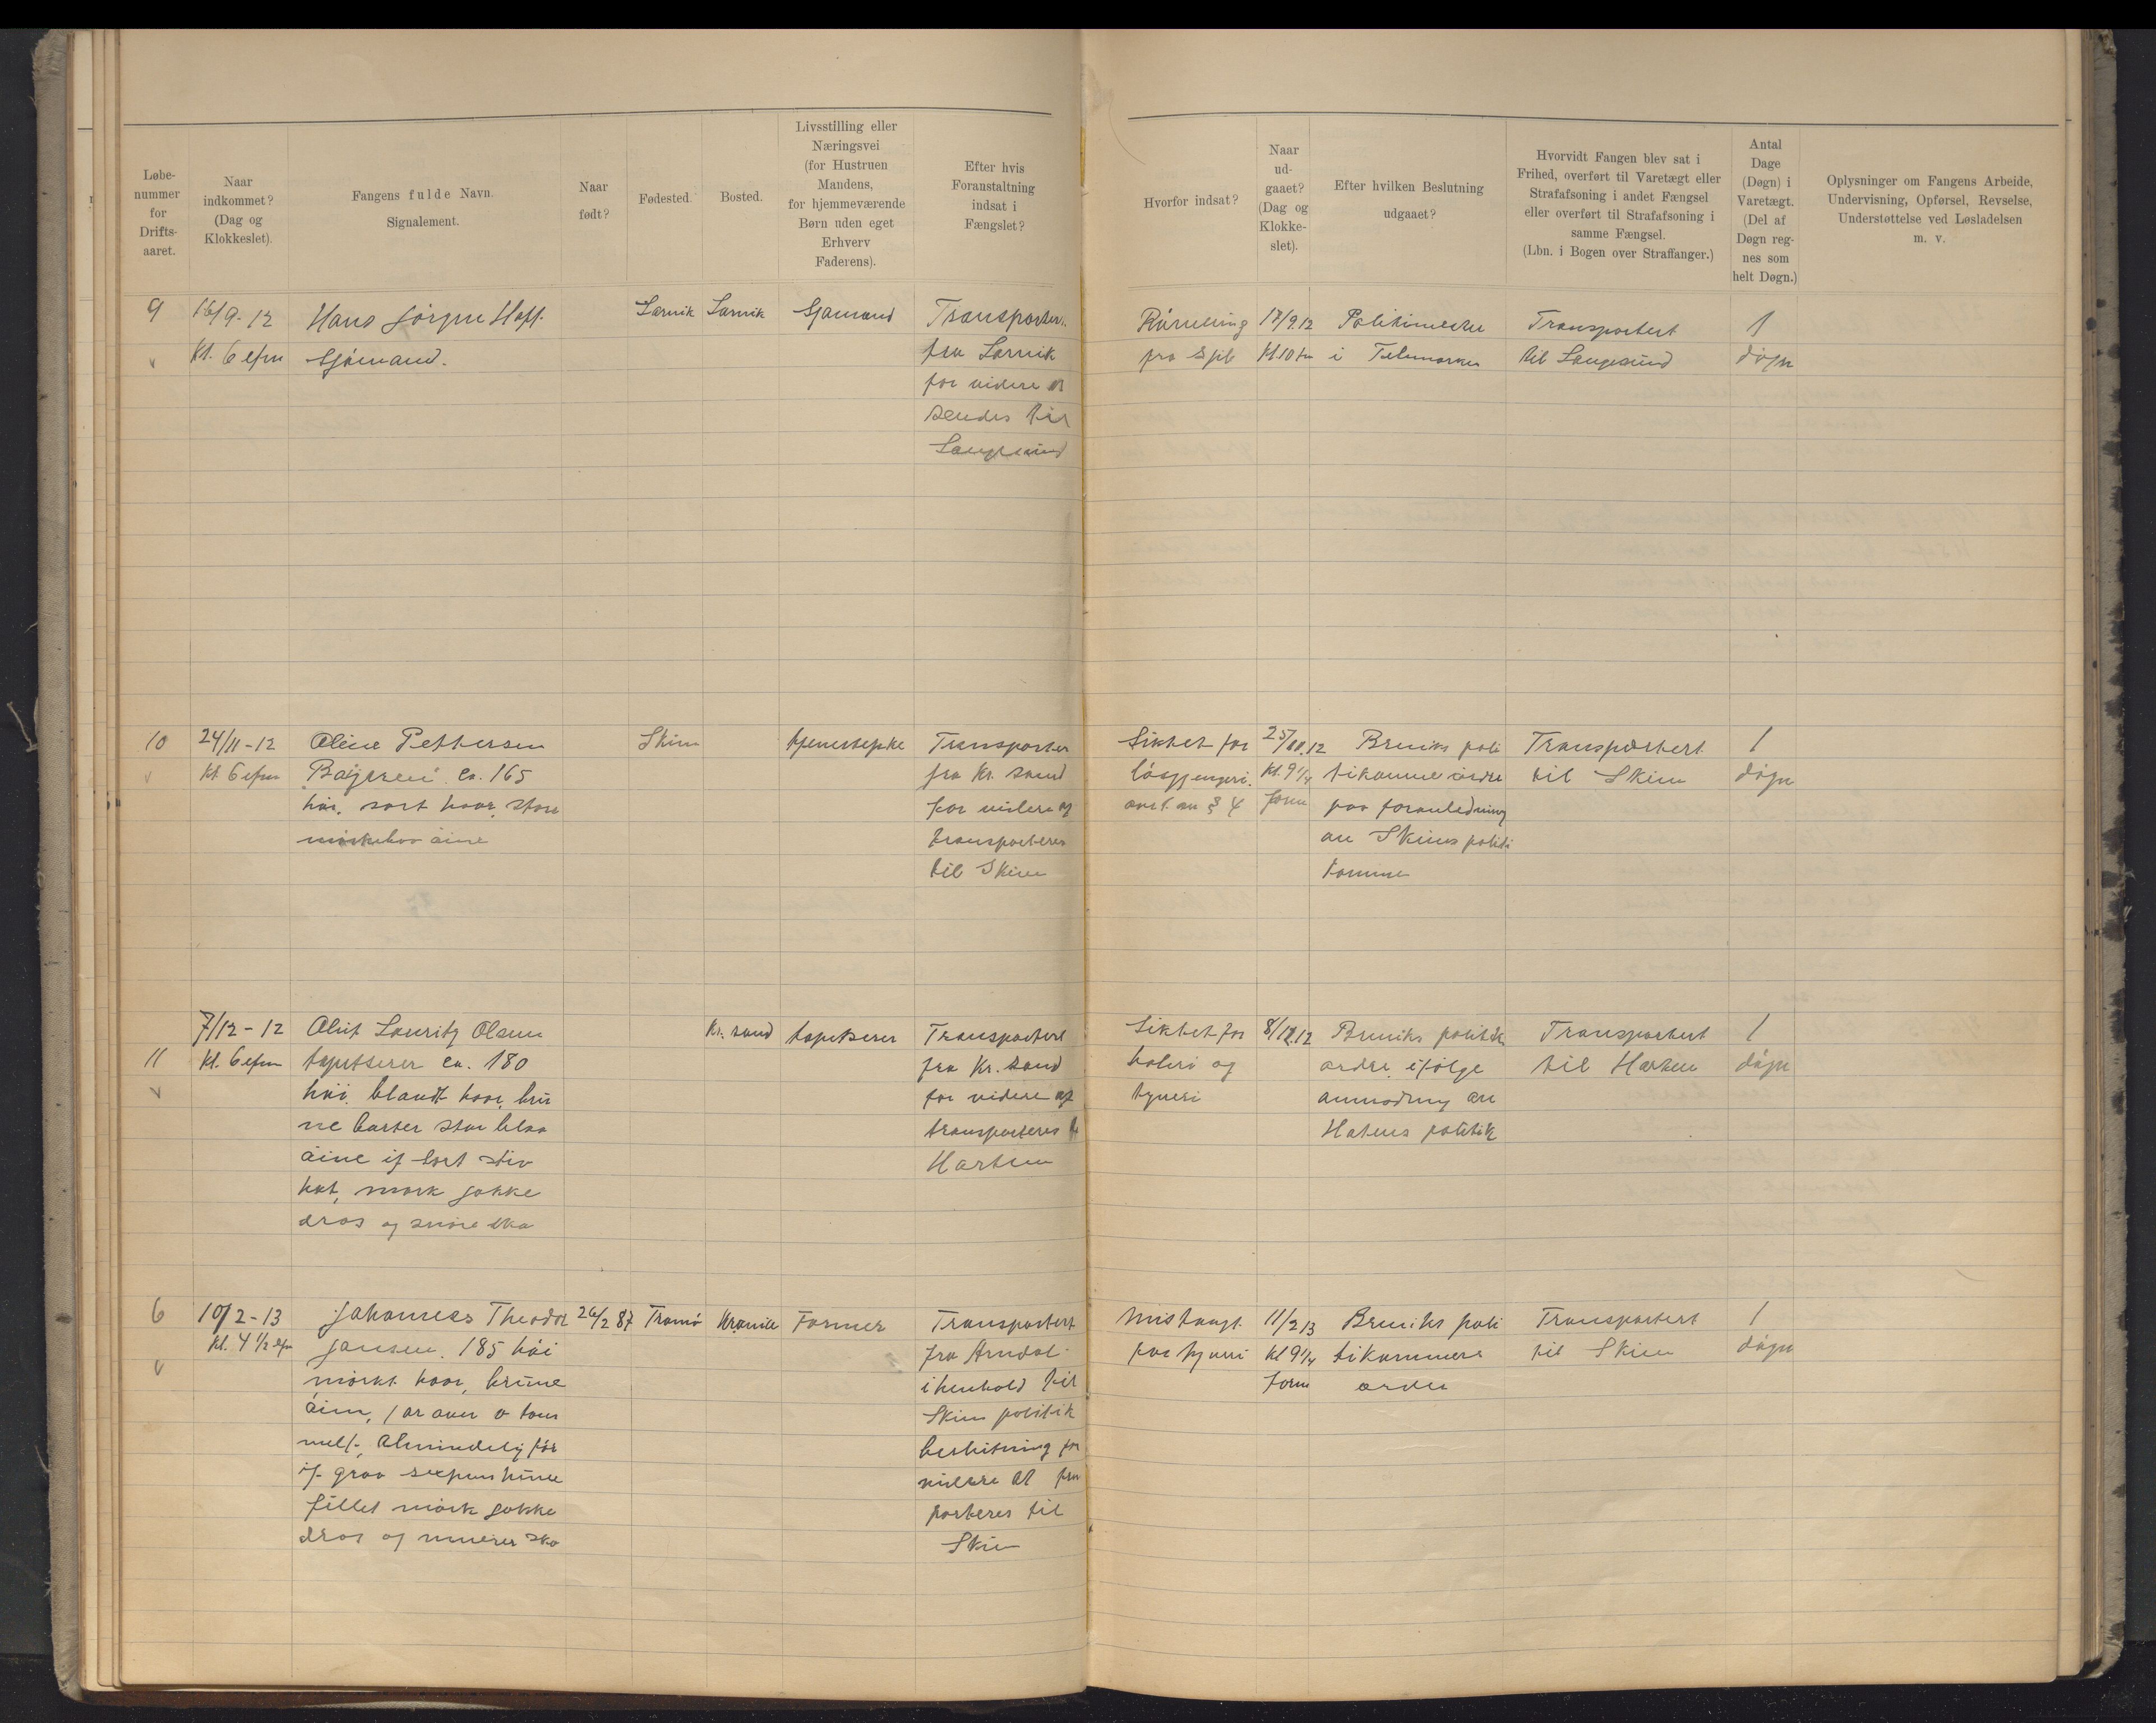 Løbe-
nummer
for
Drifts-
aaret.
Naar
indkommet?
(Dag og
Klokkeslet).
Fangens fulde Navn.
Signalement.
Naar
født?
Fødested.
Bosted.
Livsstilling eller
Næringsvei
(for Hustruen
Mandens,
for hjemmeværende
Børn uden eget
Erhverv
Faderens).
Efter hvis
Foranstaltning
indsat i
Fængslet?
Hvorfor indsat?
Naar
ud-
gaaet?
(Dag og
Klokke-
slet).
Efter hvilken Beslutning
udgaaet?
Hvorvidt Fangen blev sat i
Frihed, overført til Varetægt eller
Strafafsoning i andet Fængsel
eller overført til Strafafsoning i
samme Fængsel.
(Lbn. i Bogen over Straffanger.)
Antal
Dage
(Døgn) i
Varetægt.
(Del af
Døgn reg-
nes som
helt Døgn.)
Oplysninger om Fangens Arbeide,
Undervisning, Opførsel, Revselse,
Understøttelse ved Løsladelsen
m. v.
9
16/9-12
Kl. 6 efm
Hans Jörgen Hoff.
Sjömand.
Larvik
Larvik
Sjømand
Transporter.
fra Larvik
for videre at
sendes til
Langesund
Römning
fra Skib
17/9 12
Kl. 10 fm
Politimester
i Telemarken
Transportert
til Langesund
1
døgn
10
24/11-12
Kl. 6 efm
Oline Pettersen
ca. 165
höi, sort haar, store
mörkebaa öine
Skien
tjenestepike
Transporter
fra Kr. sand
for videre at
transporteres
til Skien
Siktet for
lösgjengeri.
§ 4
25/11.12
Kl. 9 1/4
form
Breviks poli
tikamme ordre
paa foranledning
av Skiens politi
kammer
Transportert
til Skien
1
døgn
11
7/12-12
Kl. 6 efm
Lauritz Olsen
tapetserer ca. 180
höi, blandt haar, brü
ne barter store blaa
öine if. sort stiv
hat, mörk jakke
dras og snöre sko
Kr. sand
tapetserer
Transportert
fra Kr. sand
for videre at
transporteres
Siktet for
og
tyveri
8/12.12
Breviks politik
ordre ifölge
anmodning av
politik
Transportert
til
1
døgn
6
10/2-13
Kl. 4 1/2 efm
Johannes Theodor
Jansen, 185 höi
mörkt haar, brüne
öine,
almindelig för
if. graa sixpens hüue
fillet mörk jakke
dras og sko
26/2 87
Tromö
Former
Transportert
fra Arndal
i henhold til
Skien politik
beslutning for
videre at
porteres til
Skien
Mistængt
for tyveri
11/2 13
Kl 9 1/4
form
Breviks poli
tikammers
ordre
Transportert
til Skien
1
døgn